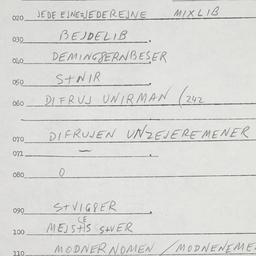 020 JEDE EJNE=JEDEREJNE MIXLIB
030 BEJDELIB
040 DEMINGBERNBESER
050 S+NIR
060 DIFRUJ UNIRMAN (242
070 DIFRUJEN UNZEJEREMENER
071 —
080 0
090 S+VIGBER
100 MEJS+LES S+VER
110 MODNERNOMEN / MODNENEME